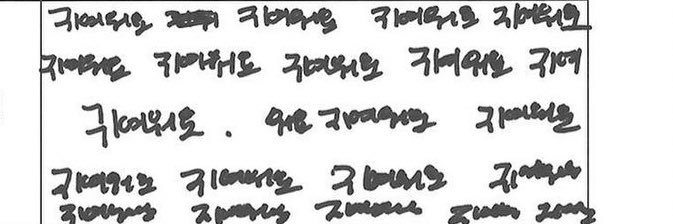 귀여워요 귀여워요 귀여워요 귀여워요
귀여워요 귀여워요 귀여워요 귀여워요 귀여
귀여워요. 워요 귀여워요 귀여워요
귀여워요 귀여워요 귀여워요 귀여워요
귀여워요 귀여워요 귀여워요